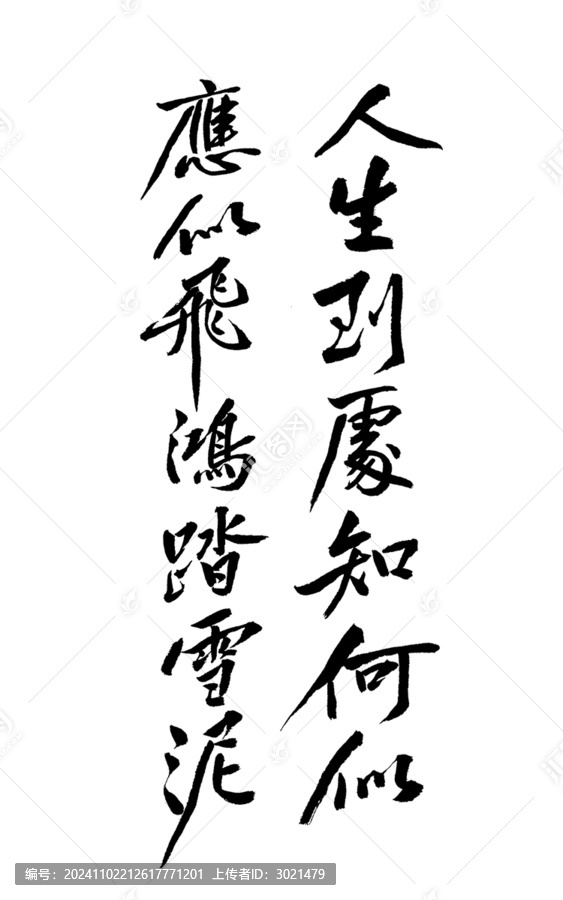 人生到處知何似
應似飛鴻踏雪泥
编号：20241102212617771201 上传者ID：3021479